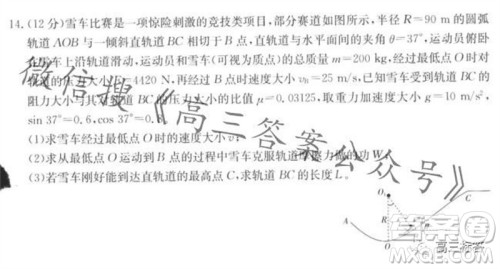 14.(12分)雪车比赛是一项惊险刺激的竞技类项目,部分赛道如图所示,半径R=90 m的圆弧
轨道AOB与一倾斜直轨道BC相切于B点,直轨道与水平面间的夹角θ=37°,运动员俯卧
在雪车上沿轨道滑动,运动员和雪车(可视为质点)的总质量m=200 kg,经过最低点O时对
轨道的压力大小F=4420 N,再经过B点时速度大小v_B=25 m/s,已知雪车受到轨道BC的
阻力大小与其对轨道BC的压力大小的比值μ=0.03125,取重力加速度大小g=10 m/s²,
sin 37°=0.6,cos 37°=0.8。
(1)求雪车经过最低点O时的速度大小v;
(2)求从最低点O运动到B点的过程中雪车克服轨道阻力做的功W;
(3)若雪车刚好能到达直轨道的最高点C,求轨道BC的长度L。
微信搜《高三答案公众号》
O₁
R
C
A
O
高三标答